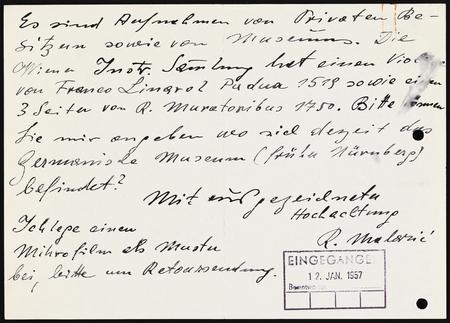 Es sind Aufnahmen von Privaten Be-
sitzen sowie von Museums. Die
Wiener Instr. Samlung hat einen
von Franco Linarol Padua 1519 sowie einen
3 Seiter von R. Muratoribus 1750. Bitte können
Sie mir angeben wo sich dezeit das
Germanische Museum (früher Nürnberg)
befindet?
Mit ausgezeichneter
Hochachtung
R. Malarić
Ich lege einen
Mikrofilm als Muster
bei, bitte um Retoursendung.
EINGEGANGEN
12. JAN. 1957